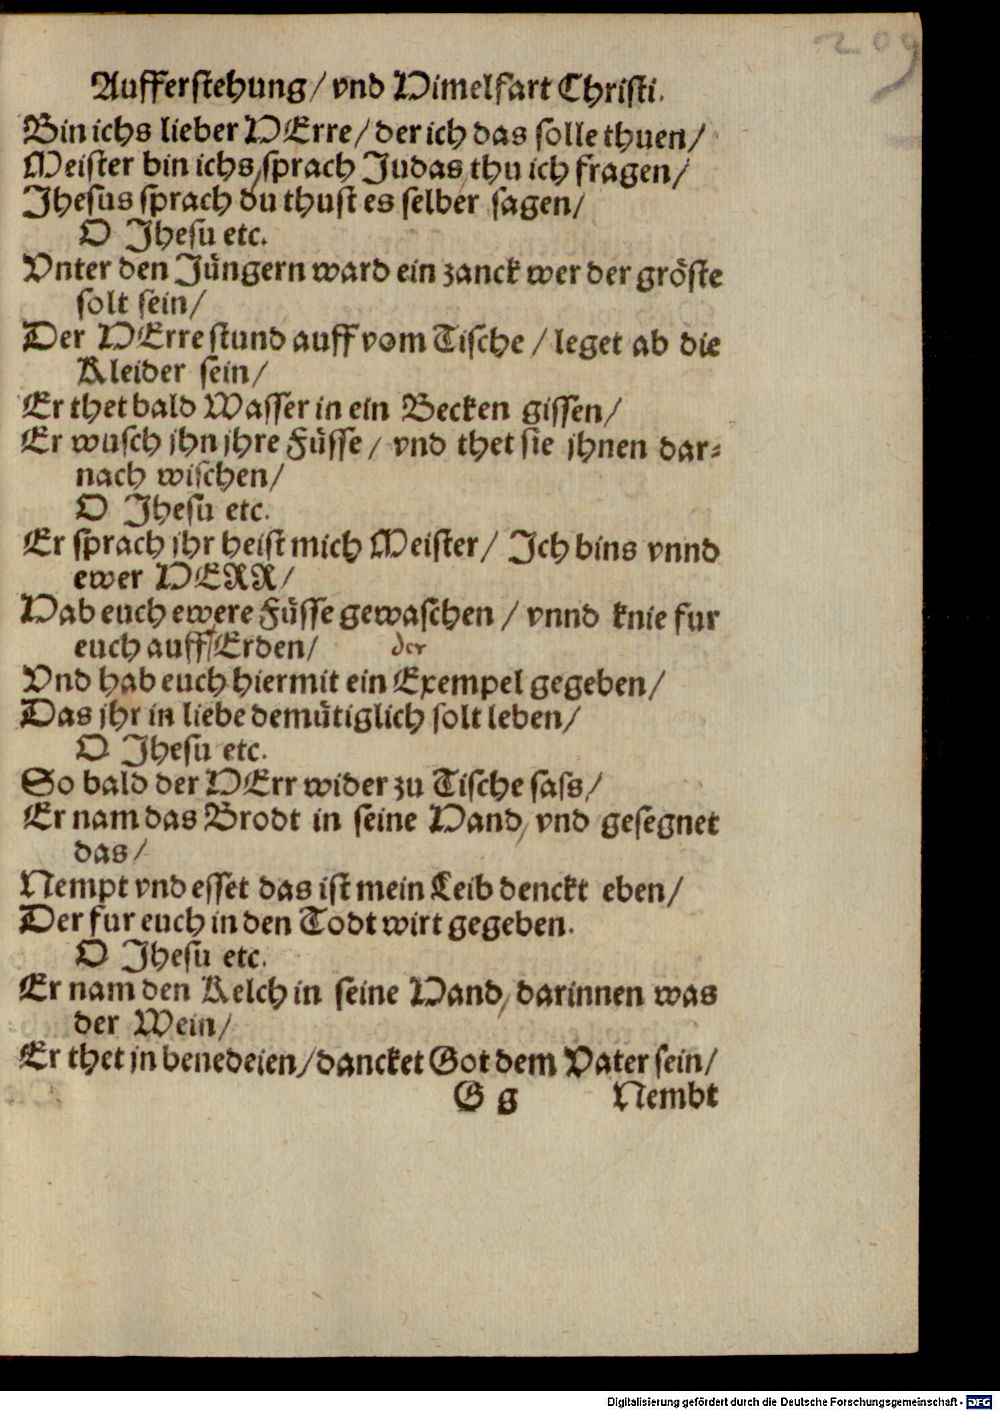 209
Aufferstehung/ vnd Himelfart Christi.
Bin ichs lieber HErre/ der ich das solle thuen/
Meister bin ichs/ sprach Judas/ thu ich fragen/
Jhesus sprach du thust es selber sagen/
O Jhesu etc.
Vnter den Jüngern ward ein zanck wer der gröste
solt sein/
Der HErre stund auff vom Tische / leget ab die
Kleider sein/
Er thet bald Wasser in ein Becken gissen/
Er wusch jhn jhre Füsse / vnd thet sie jhnen dar⸗
nach wischen/
O Jhesu etc.
Er sprach jhr heist mich Meister/ Ich bins vnnd
ewer HERR/
Hab euch ewere Füsse gewaschen / vnnd knie fur
euch auff Erden/ der
Vnd hab euch hiermit ein Exempel gegeben/
Das jhr in liebe demütiglich solt leben/
O Jhesu etc.
So bald der HErr wider zu Tische sass/
Er nam das Brodt in seine Hand/ vnd gesegnet
das/
Nempt vnd esset das ist mein Leib denckt eben/
Der fur euch in den Todt wirt gegeben.
O Jhesu etc.
Er nam den Kelch in seine Hand/ darinnen was
der Wein/
Er thet jn benedeien/ dancket Got dem Vater sein/
G g Nembt
Digitalisierung gefördert durch die Deutsche Forschungsgemeinschaft - DFG